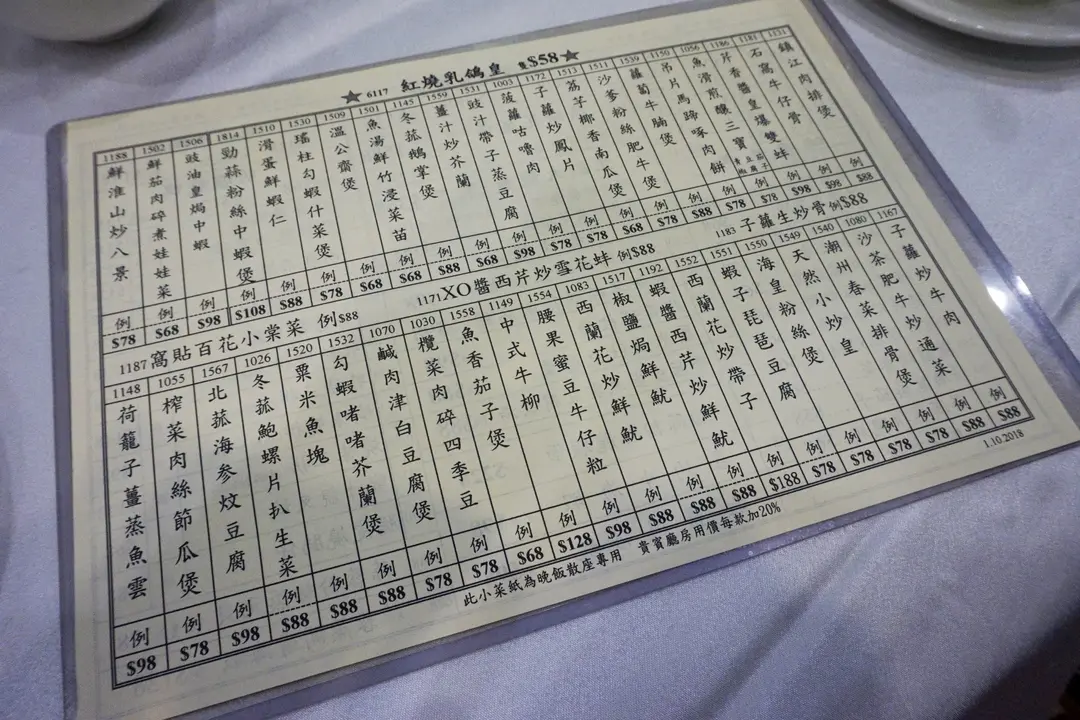 ★ 6117 紅燒乳鴿皇 隻$58 ★
1131 鎮江肉排煲 例 $88
1181 石窩牛仔骨 例 $98
1186 芹香醬皇爆雙蚌 例 $98
1056 魚滑煎釀三寶 青椒 豆腐 茄子 例 $78
1150 吊片馬蹄啄肉餅 例 $78
1539 蘿蔔牛腩煲 例 $88
1511 沙爹粉絲肥牛煲 例 $78
1513 荔芋椰香南瓜煲 例 $68
1172 子蘿炒鳳片 例 $78
1003 菠蘿咕嚕肉 例 $78
1531 豉汁帶子蒸豆腐 例 $98
1559 薑汁炒芥蘭 例 $68
1145 冬菰鵝掌煲 例 $88
1501 魚湯鮮竹浸菜苗 例 $68
1509 溫公齋煲 例 $68
1530 瑤柱勾蝦什菜煲 例 $78
1510 滑蛋鮮蝦仁 例 $88
1814 勁蒜粉絲中蝦煲 例 $108
1506 豉油皇焗中蝦 例 $98
1502 鮮茄肉碎煮娃娃菜 例 $68
1188 鮮淮山炒八景 例 $78
1187 窩貼百花小棠菜 例 $88
1171 XO醬西芹炒雪花蚌 例$88
1183 子蘿生炒骨 例$88
1167 子蘿炒牛肉 例 $88
1080 沙茶肥牛炒通菜 例 $88
1540 潮州春菜排骨煲 例 $78
1549 天然小炒皇 例 $78
1550 海皇粉絲煲 例 $78
1551 蝦子琵琶豆腐 例 $78
1552 西蘭花炒帶子 例 $188
1192 蝦醬西芹炒鮮魷 例 $88
1517 椒鹽焗鮮魷 例 $88
1083 西蘭花炒鮮魷 例 $88
1554 腰果蜜豆牛仔粒 例 $98
1149 中式牛柳 例 $128
1558 魚香茄子煲 例 $68
1030 欖菜肉碎四季豆 例 $78
1070 鹹肉津白豆腐煲 例 $78
1532 勾蝦啫啫芥蘭煲 例 $88
1520 粟米魚塊 例 $88
1026 冬菰鮑螺片扒生菜 例 $88
1567 北菰海参炆豆腐 例 $98
1055 榨菜肉絲節瓜煲 例 $78
1148 荷蘢子薑蒸魚雲 例 $98
此小菜紙為晚飯散座專用 貴賓廳房用價每款加20%
1.10.2018